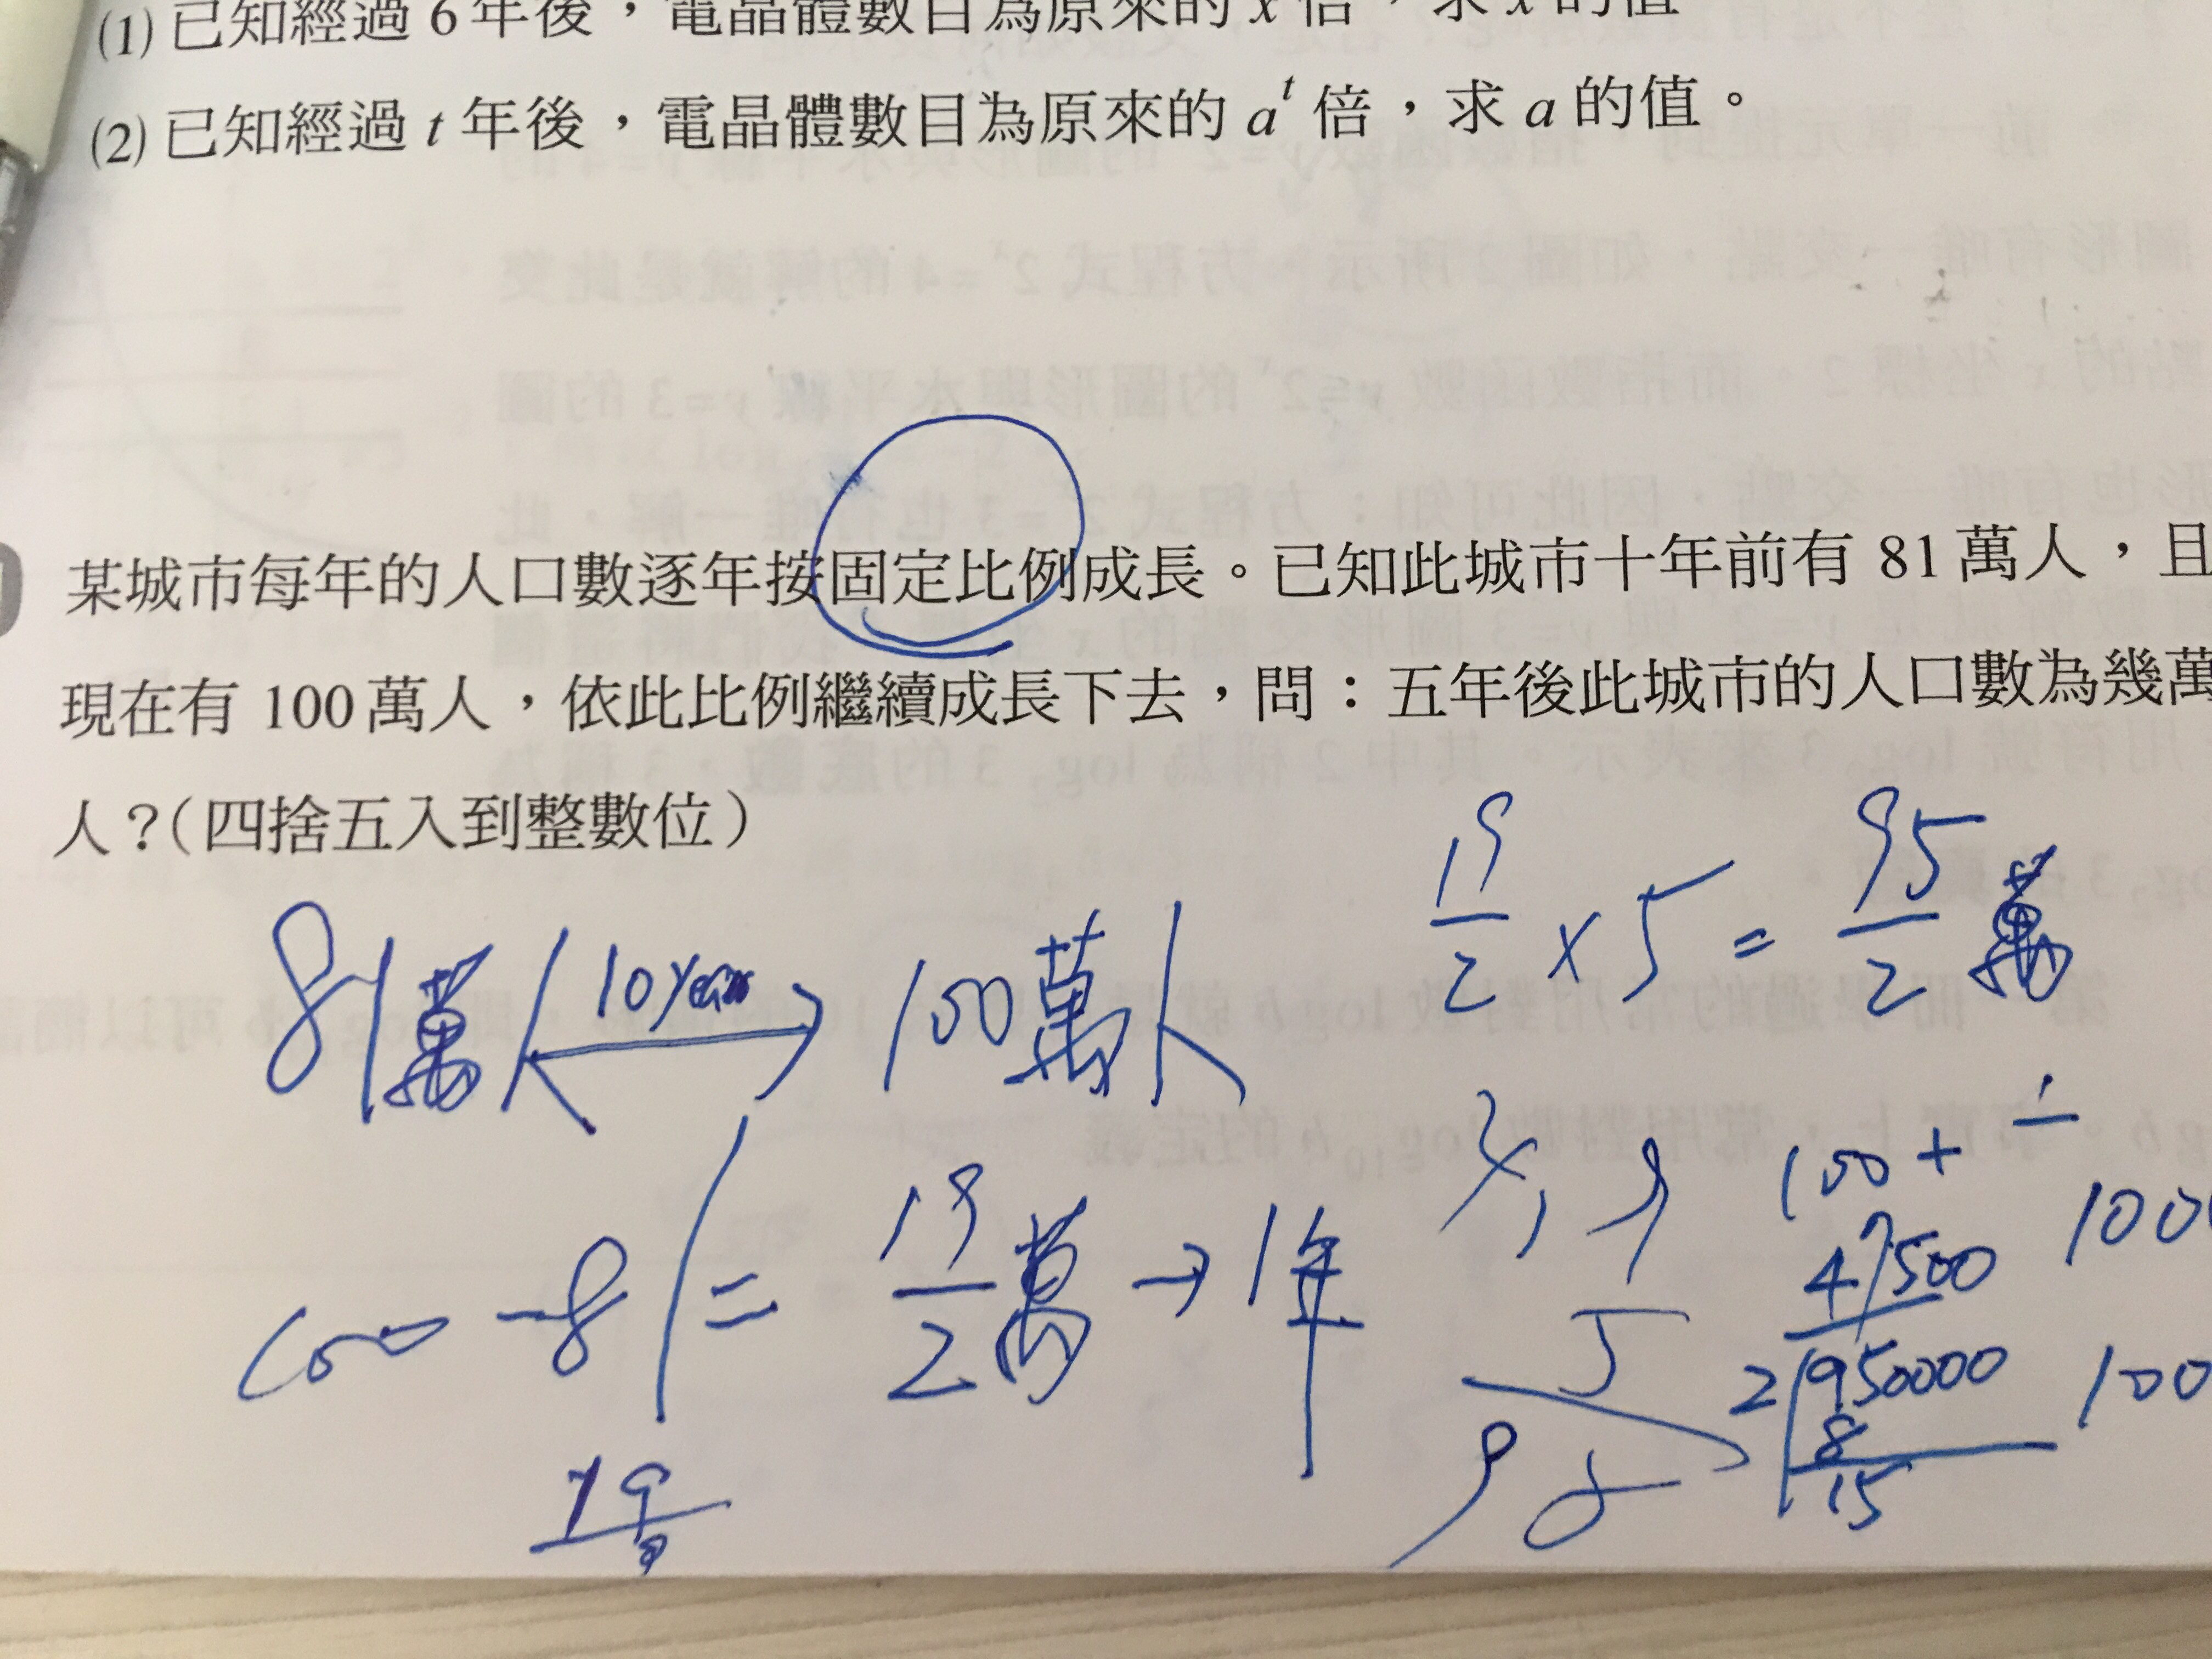 (1) 已知經過 6 年後，電晶體數目為原來的 x 倍，求 x 的值
(2) 已知經過 t 年後，電晶體數目為原來的 aᵗ 倍，求 a 的值。
某城市每年的人口數逐年按固定比例成長。已知此城市十年前有 81 萬人，且
現在有 100 萬人，依此比例繼續成長下去，問：五年後此城市的人口數為幾萬
人？(四捨五入到整數位)
19/2 × 5 = 95/2 萬
81萬人 10 year 100萬人
100 - 81 = 19/2 萬 → 1年
19
100 +
100
47500
2 950000
100
8
15
5
95